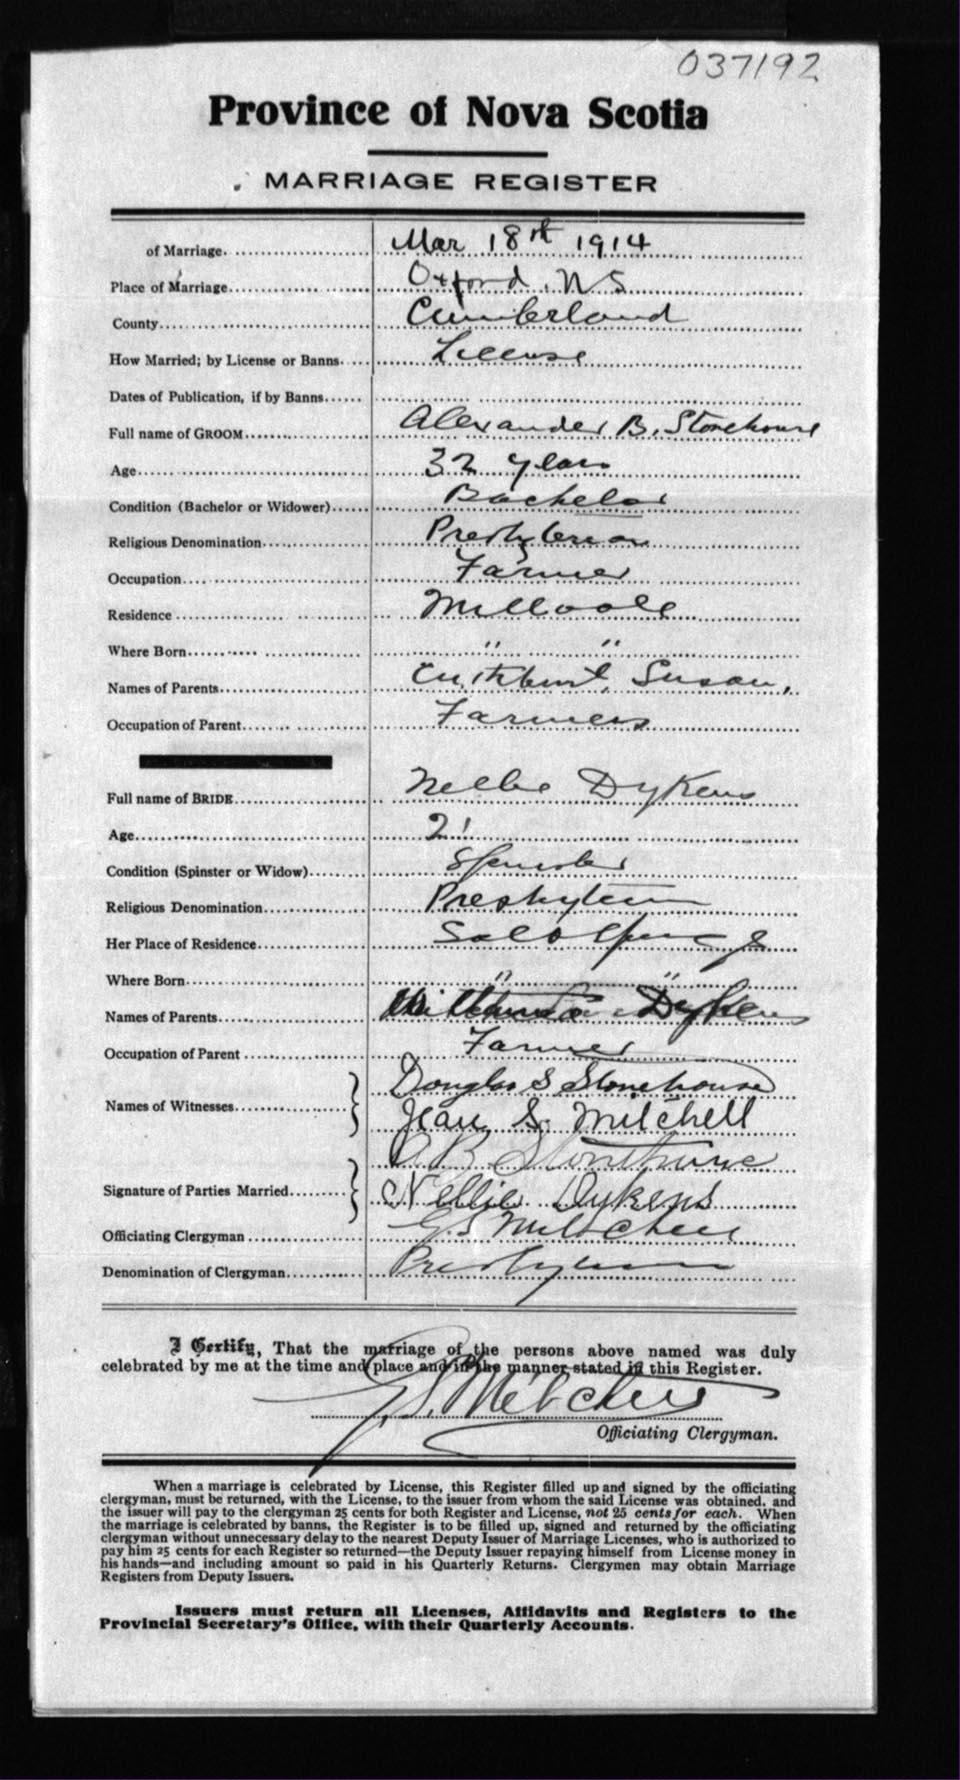 037192
Province of Nova Scotia
MARRIAGE REGISTER
of Marriage Mar 18th 1914
Place of Marriage Oxford, N S
County Cumberland
How Married; by License or Banns License
Dates of Publication, if by Banns
Full name of GROOM Alexander B. Stonehouse
Age 32 years
Condition (Bachelor or Widower) Bachelor
Religious Denomination Presbyterian
Occupation Farmer
Residence Millvale
Where Born " "
Names of Parents Cuthbert, Susan,
Occupation of Parent Farmers
Full name of BRIDE Nellie Dykens
Age 21
Condition (Spinster or Widow) Spinster
Religious Denomination Presbyterian
Her Place of Residence Salt Springs
Where Born " "
Names of Parents Dykens
Occupation of Parent Farmer
Names of Witnesses Douglas S Stonehouse
Jean S. Mitchell
A B Stonehouse
Signature of Parties Married Nellie Dykens
Officiating Clergyman G. S Mitchell
Denomination of Clergyman Presbyterian
I Certify, That the marriage of the persons above named was duly
celebrated by me at the time and place and in the manner stated in this Register.
G. S. Mitchell
Officiating Clergyman.
When a marriage is celebrated by License, this Register filled up and signed by the officiating
clergyman, must be returned, with the License, to the issuer from whom the said License was obtained, and
the issuer will pay to the clergyman 25 cents for both Register and License, not 25 cents for each. When
the marriage is celebrated by banns, the Register is to be filled up, signed and returned by the officiating
clergyman without unnecessary delay to the nearest Deputy Issuer of Marriage Licenses, who is authorized to
pay him 25 cents for each Register so returned—the Deputy Issuer repaying himself from License money in
his hands—and including amount so paid in his Quarterly Returns. Clergymen may obtain Marriage
Registers from Deputy Issuers.
Issuers must return all Licenses, Affidavits and Registers to the
Provincial Secretary's Office, with their Quarterly Accounts.